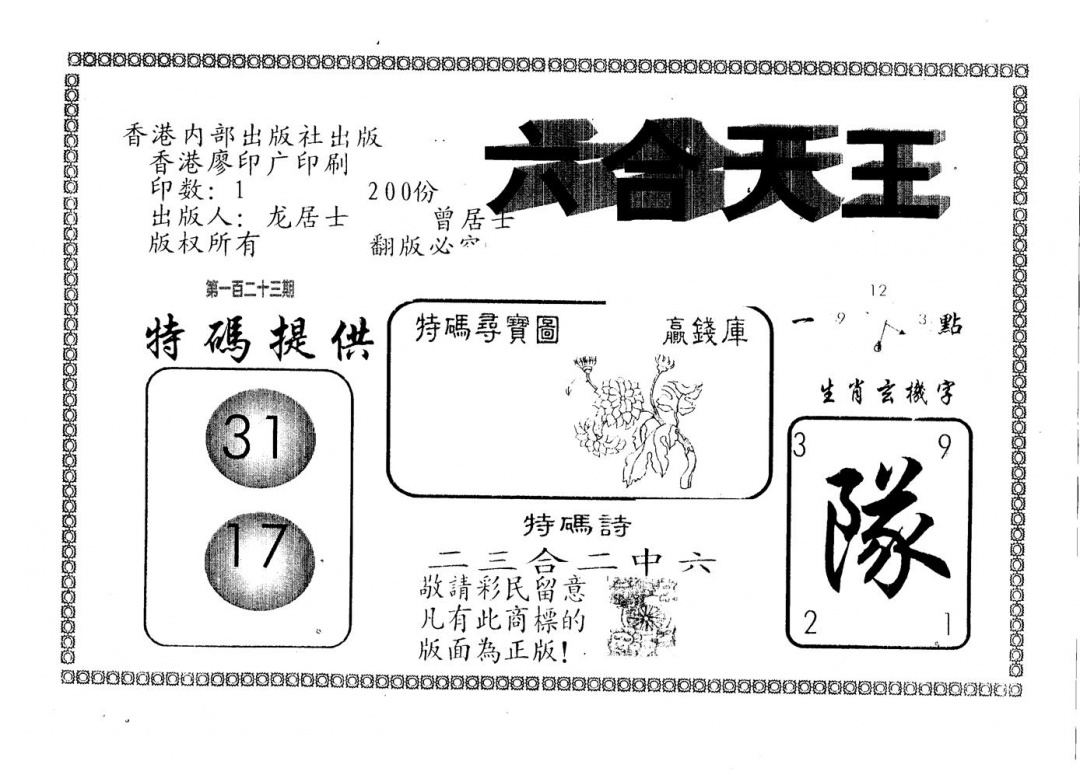 香港内部出版社出版
香港廖印广印刷
印数：1 200份
出版人：龙居士 曾居士
版权所有 翻版必究
六合天王
第一百二十三期
特碼提供
31
17
特碼尋寶圖 贏錢庫
特碼詩
二三合二中六
敬請彩民留意
凡有此商標的
版面為正版！
12
一 9 3 點
生肖玄機字
3 9
隊
2 1